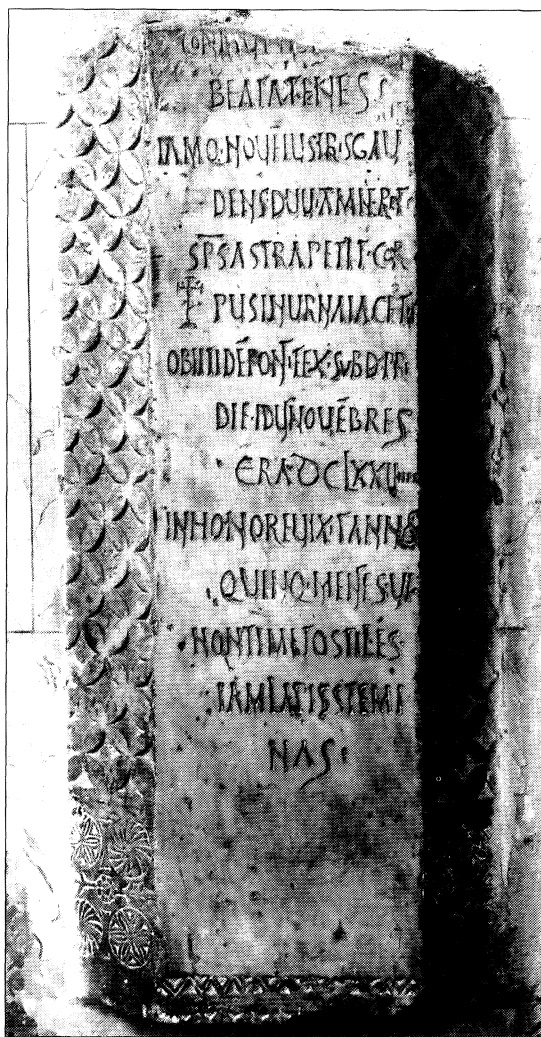 BEATA·TENES
IAMQ·NOUĒ LUSTRIS GAU
DENS DUU·TA M
SP̄S ASTRA PETIIT·COR
PUS IN URNA IACET
OBIIT IDĒ PONTIFEX·SUB D·PRI
DIE·IDUS NOUĒBRES
ERA·DCLXXUIIII
IN HONORE UIXIT ANNOS
QUINQ·MENSES UI·
NON TIMET OSTILES·
IAM LAPIS ISTE MI
NAS·